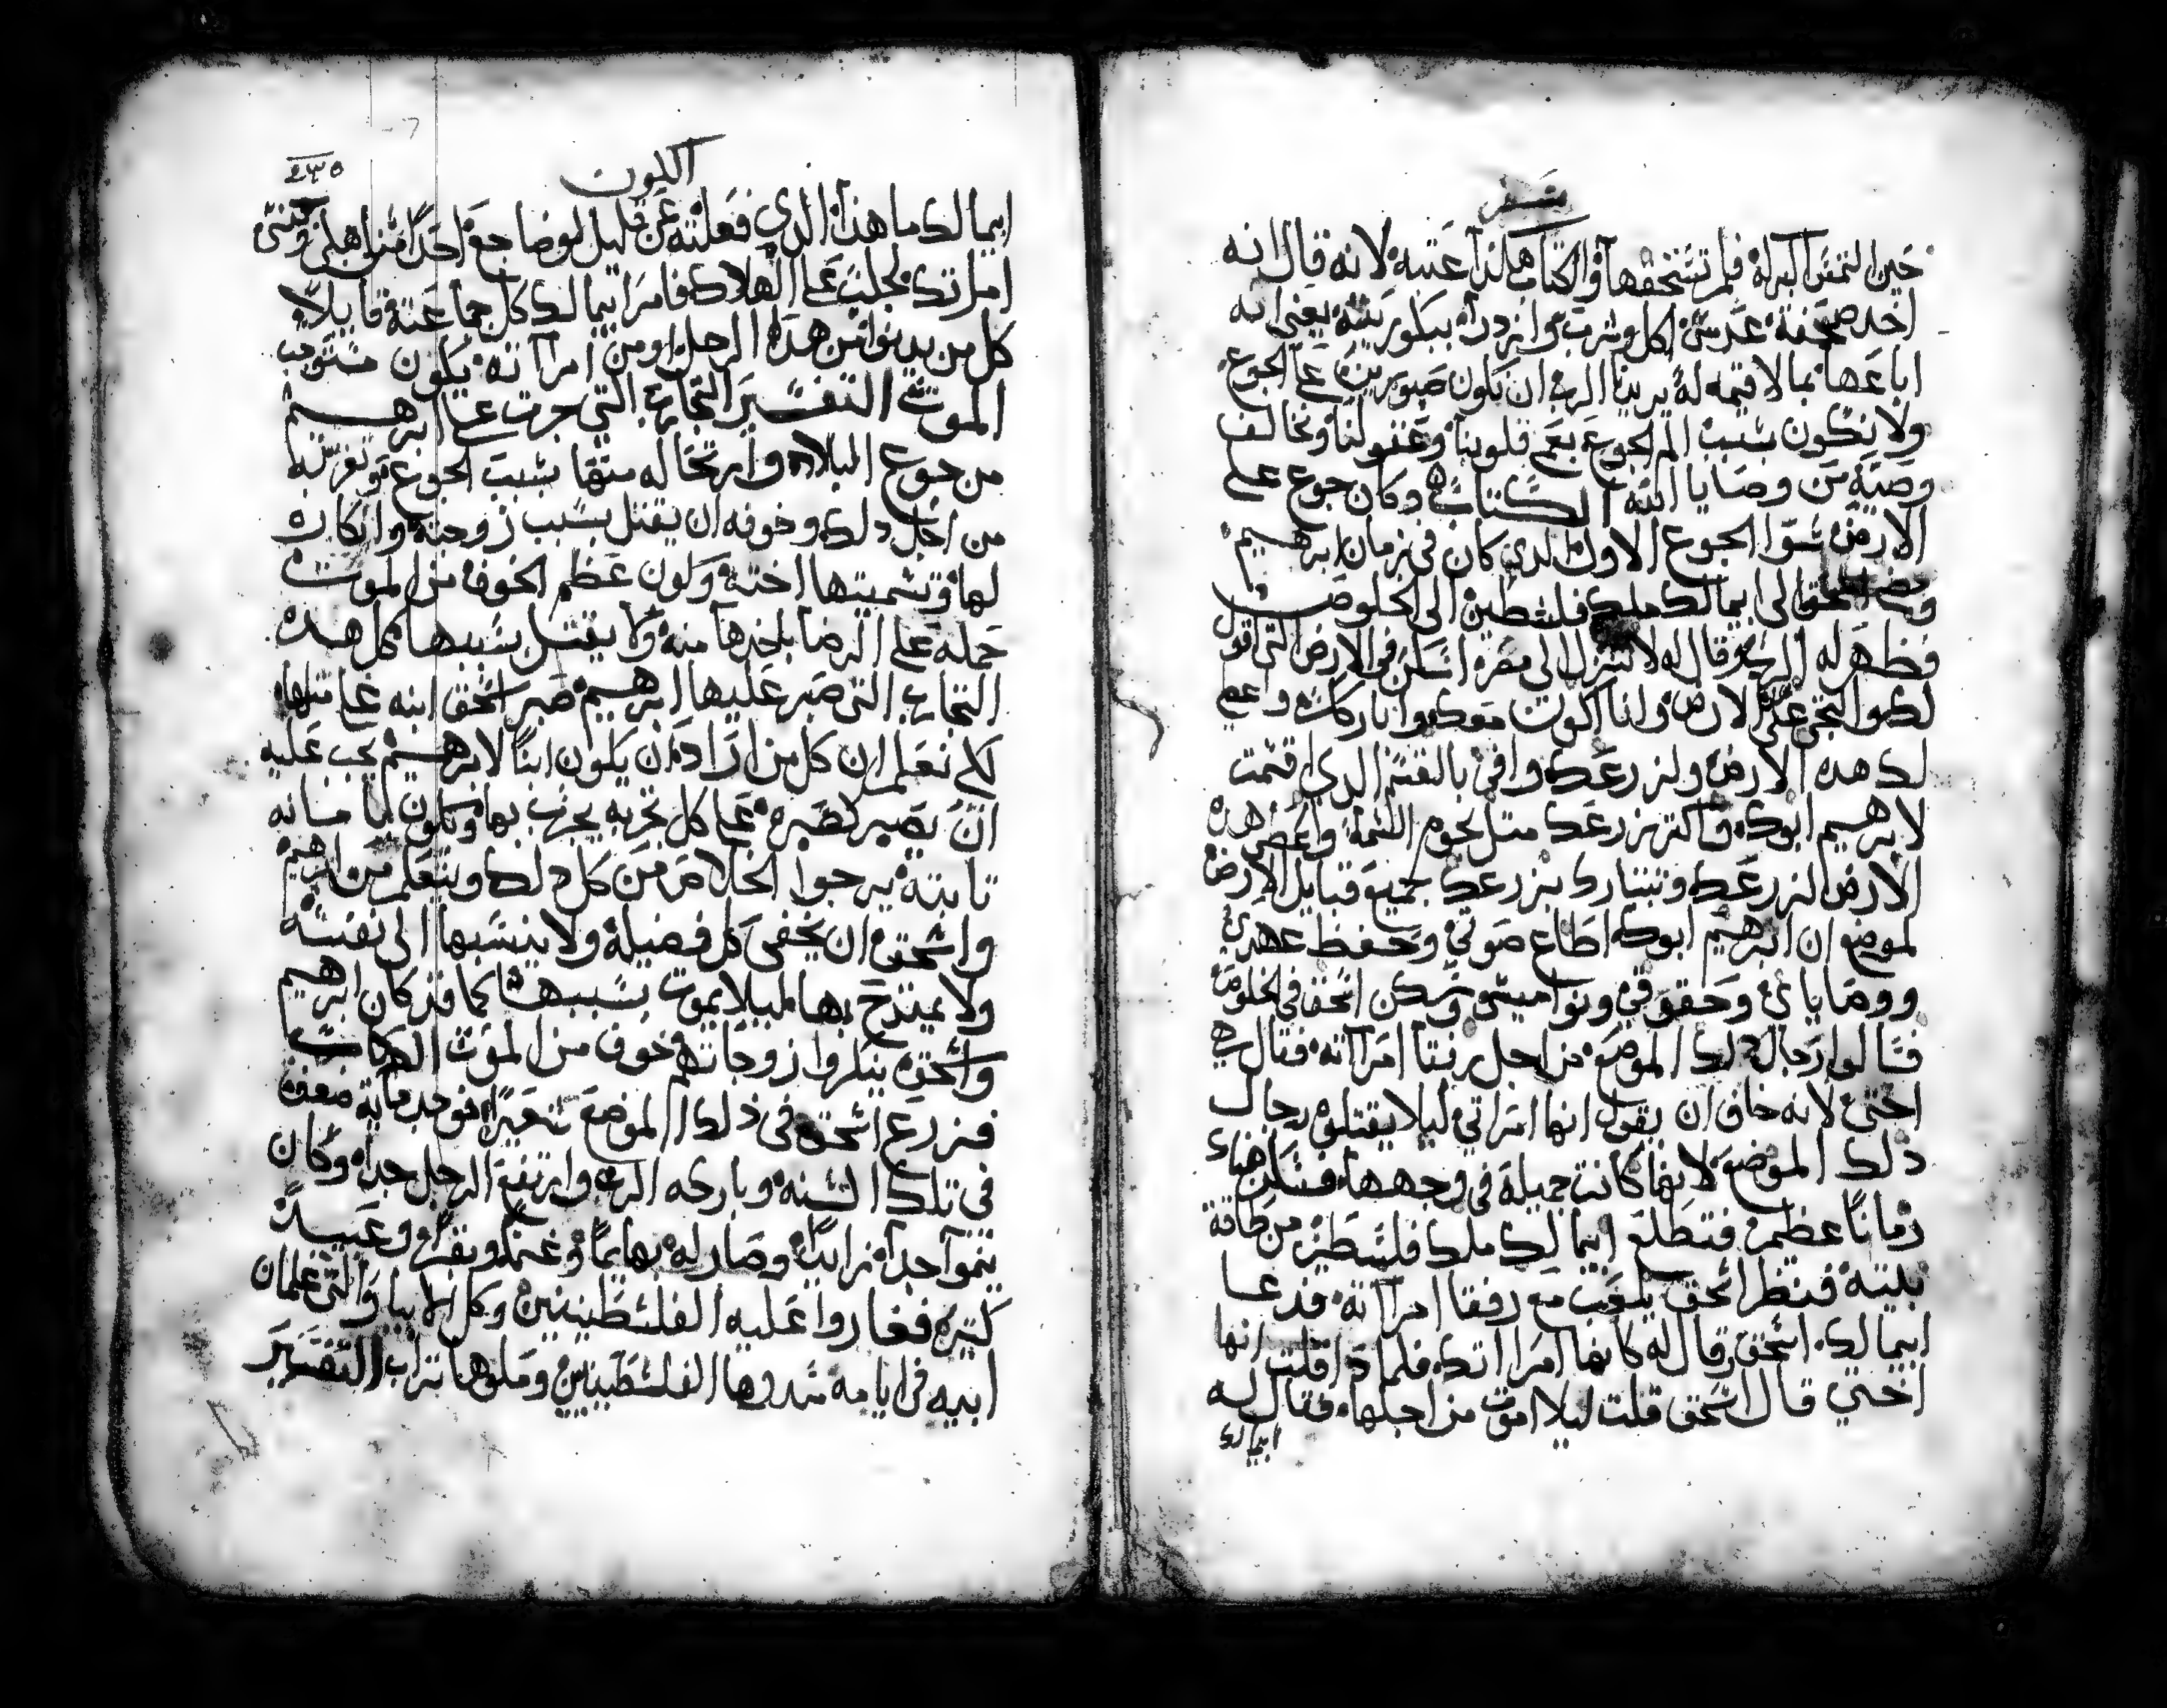 سفر
حين التمس البركة فلم تستحقها والكتاب هكذا عتبه لانه قال انه
اخد صحفة عدس اكل وشرب وازدرا ببكوريته يعني انه
اباعها بما لا قيمه له يريد الرب ان نكون صبورين على الجوع
ولا نكون بسبب الم الجوع بعمي قلوبنا وعقولنا ونخالف
وصية من وصايا الله الكتاب وكان جوع على
الارض سوا الجوع الاول الدي كان في زمان ابرهيم
اسحق الى ابيمالك ملك فلسطين الى الخلوص
فظهر له الرب وقال له لا تنزل الى مصر اسكن في الارض التي اقول
لك والتجي على الارض وانا اكون معك واباركك واعطي
لك هده الارض ولزرعك وافي بالقسم الدي اقسمت
لابرهيم ابوك واكتر زرعك متل نجوم السما واعطي هده
الارض لزرعك وتتبارك بزرعك جميع قبايل الارض
لموضع ان ابرهيم ابوك اطاع صوتي وحفظ عهدي
ووصاياي وحقوقي ونواميسي وسكن اسحق في الخلوص
فسالوا رجال دلك الموضع من اجل ربقا امراته فقال هي
اختي لانه خاف ان يقول انها امراتي ليلا يقتلوه رجال
دلك الموضع لانها كانت جميلة في وجهها فسكن هناك
زمانا عظيم فتطلع ابيمالك ملك فلسطين من طاقة
بيته فنظر اسحق يلعب مع رفقا امراته فدعا
ابيمالك اسحق وقال له كانها امراتك فلمادا قلت انها
اختي قال اسحق قلت ليلا اموت من اجلها فقال له
ابيمالك
الكون
٢٣٥
ابيمالك ما هذا الدي فعلته عن قليل لو ضاجع احدا من اهلي
امراتك لجلبت على الهلاك فامر ابيمالك كل جماعته قايلا
كل من يدنوا من هذا الرجل او من امراته يكون مستوجب
الموت التفسير التجارب التي جرت على ابرهيم
من جوع البلاد وارتحاله منها بسبب الجوع
من اجل دلك وخوفه ان يقتل بسبب زوجته وانكاره
لها وتسميتها اخته وكون عظم الخوف من الموت
حمله على الرضا باخدها منه ولا يقتل بسببها كل هده
التجارب التي صبر عليها ابرهيم صبر اسحق ابنه على متلها
لكي نعلم ان كل من اراد ان يكون ابنا لابرهيم يجب عليه
ان يصبر كصبره على كل تجربه يجرب بها وتكون امانه
تابته يرجوا الخلاص من كل دلك ويتعلم من ابرهيم
واسحق ان يخفي كل فضيلة ولا ينسبها الى نفسه
ولا يمتدح بها ليلا يموت بسببها كما قد كان ابرهيم
واسحق ينكروا زوجاتهم خوف من الموت الكتاب
فزرع اسحق في ذلك الموضع شعيرا فوجد ماية ضعف
في تلك السنه وباركه الرب وارتفع الرجل جدا وكان
ينموا جدا زايدا وصار له بهايما وغنما وبقرا وعبيد
كتيره فغاروا عليه الفلسطينيين وكل الابيار التي غلمان
ابيه في ايامه سدوها الفلسطينيين وملوها تراب التفسير